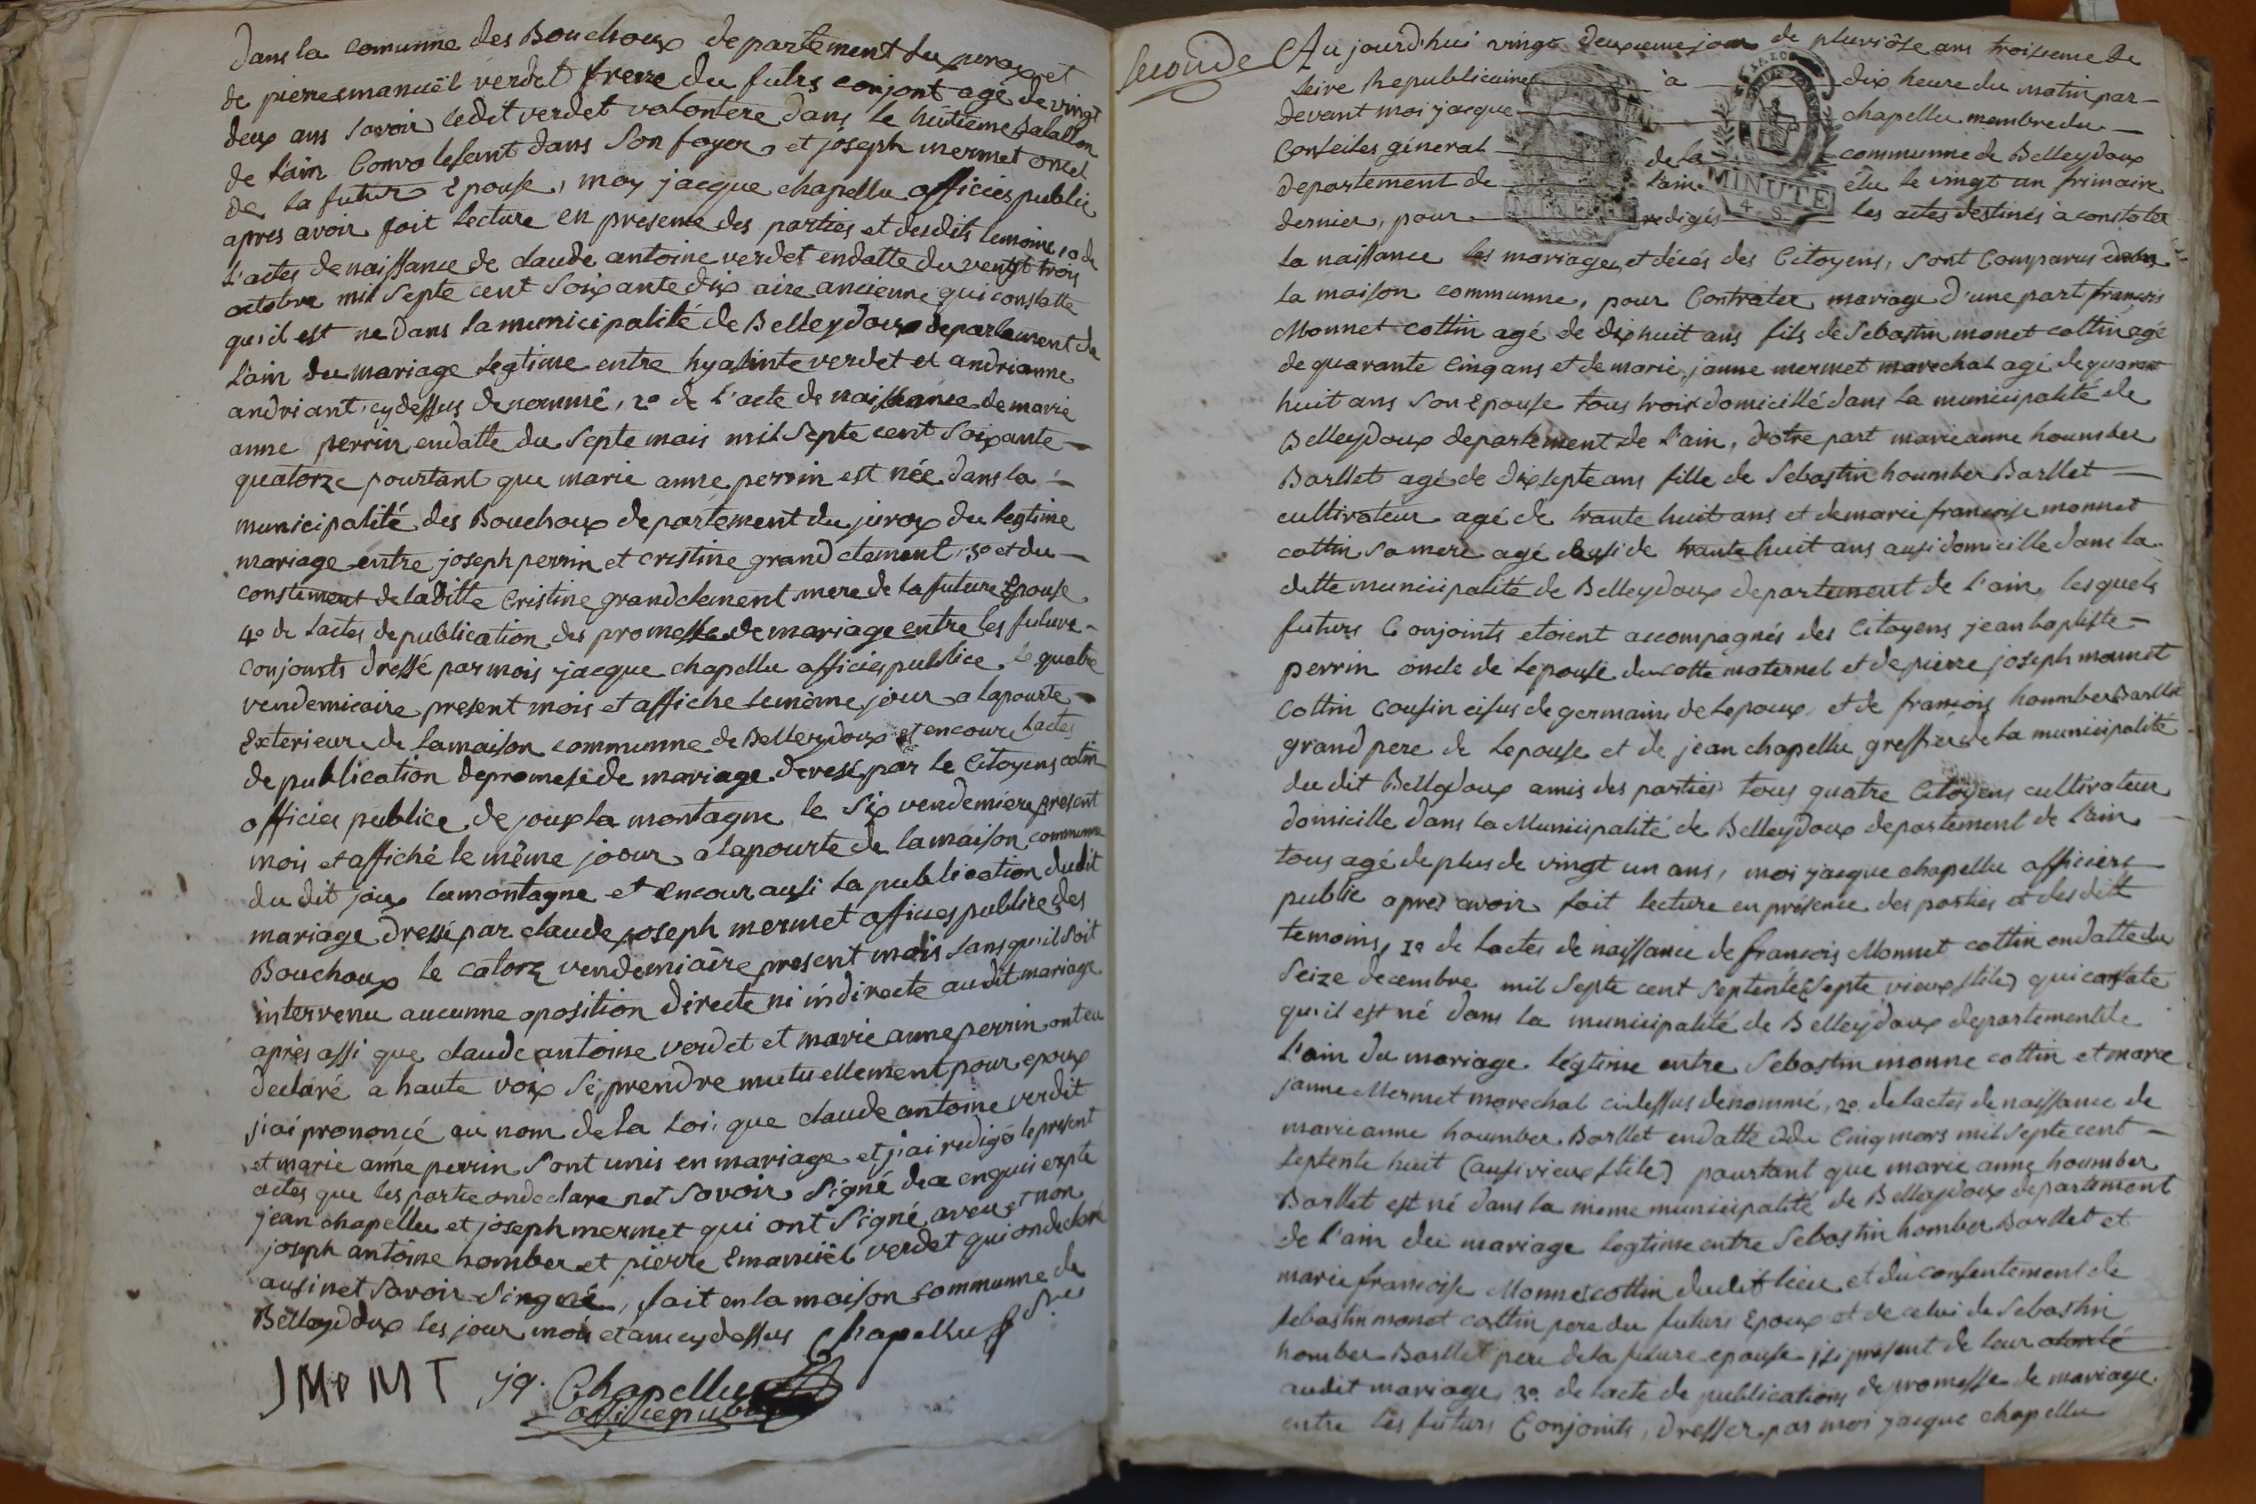 dans la comunne des Bouchoux departement du jurax et
de pierre emanuël verdet frere du futurs conjont agé de vingt
deux ans savoir ledit verdet volontere dans le huitieme Batallon
de l'ain Convalesant dans son foyer et joseph mermet oncel
de la futur Epouse, moy jacque chapellu officies public
apres avoir fait lecture en presene des parties et desdits temoins 1º de
L'actes de naissance de claude antoine verdet endatte du vengt trois
octobre mil septe cent soixante dix aire ancienne qui constatte
qu'il est ne dans la municipalité de Belleydoux departement de
L'ain du mariage legtime entre hyasinte verdet et andrianne
andriant cy dessus denommé, 2º de l'acte de naissance de marie
anne perrin endatte du septe mais mil septe cent soixante
quatorze pourtant que marie anne perrin est née dans la
municipalité des Bouchoux departement du jurax du legtime
mariage entre joseph perrin et cristine grand clement, 3º et du
constement de laditte Cristine grand clement mere de la future Epouse
4º de lactes de publication des promesse de mariage entre les future
conjounts dressé par mois jacque chapellu officies publice le quatre
vendemicaire present mois et affiche lemême jour a lapourte
Exterieure de lamaison communne de Belleydoux et encoure lactes
de publication depromese de mariage deresé par le Citoyens cotin
officies publice de joux la montagne le six vendemiere present
mois et affiché le même joour a lapourte de la maison communne
du dit joux lamontagne et encour ausi la publication dudit
mariage dressé par claude joseph mermet officies publice des
Bouchoux le catorz vendemiaire present mois sans qu'il soit
intervenu aucunne oposition directe ni indirecte audit mariage
après assi que claude antoine verdet et marie anne perrin ont eu
declaré a haute voix se prendre mutuellement pour epoux
j'ai prononcé au nom de la Loi que claude antoine verdit
et marie anne perrin sont unis en mariage et j'ai redigés le present
actes que les partie ondeclare net savoir signé de ce enquis expte
jean chapellu et joseph mermet qui ont signé avec et non
joseph antoine homber et pierre Emanuël verdet qui ondeclaré
ausi net savoir singné, fait en la maison communne de
Belleydoux les jour mois et an cy dessus Chapellu
JMPMT jq. Chapellu
officie public
seconde Aujourd'hui vingt deuxieme jour de pluviôse ans troisieme de
Leire Republicaine à dix heure du matin par
devant moi jacque chapellu membre du
Conseiles géneral de la communne de Belleydoux
departement de l'ain élu le vingt un frimaire
dernier, pour redigés les actes destinés à constater
MINUTE
4. S.
la naissance les mariages et décés des Citoyens, sont Comparus dans
la maison communne, pour Contrater mariage d'une part françois
Monnet cottin agé de dix huit ans fils de Sebastin monet cottin agé
de quarante cinq ans et de marie janne mermet marechal agé de quarant
huit ans son Epouse tous trois domicillé dans la municipalité de
Belleydoux departement de l'ain, d'otre part marie anne houmber
Barllet agé de dix septe ans fille de Sebastin houmber Barllet
cultivateur agé de trante huit ans et de marie francoise monnet
cottin sa mere agé ausi de trante huit ans ausi domicille dans la
ditte municipalité de Belleydoux departement de l'ain, lesquels
futurs Conjoints etoient accompagnés des Citoyens jean baptiste
perrin oncle de Lepouse du cotte maternel et de pierre joseph monnet
Cottin cousin eisus de germains de Lepoux et de francois houmber Barllet
grand pere de Lepouse et de jean chapellu greffier de la municipalité
du dit Belleydoux amis des parties tous quatre Citoyens cultivateur
domicille dans la Municipalité de Belleydoux departement de l'ain
tous agé de plus de vingt un ans, moi jacque chapellu officiers
public apres avoir fait lecture en présence des parties et desdett
temoins, 1º de lactes de naissance de francois Monnet cottin endatte du
seize decembre mil septe cent septente septe (vieux stile) qui constate
qu'il est né dans la municipalité de Belleydoux departement de
l'ain du mariage légtime entre Sebastin monne cottin et marie
janne Mermet morechal cidessus denommé, 2º de lactes de naissance de
marie anne houmber Barllet endatte du Cinq mars mil septe cent
septente huit (ausi vieux stile) pourtant que marie anne houmber
Barllet est né dans la meme municipalité de Belleydoux departement
de l'ain du mariage legtime entre Sebastin homber Barllet et
marie francoise Monnet cottin dudit lieu et du consentement de
sebastin monet cottin pere du futurs Epoux et de celui de Sebastin
homber Barllet pere de la future epouse isi present de leur
audit mariage, 3º de lacte de publications de promesse de mariage
entre les futurs Conjoints, dresser par moi jacque chapellu